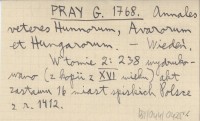 PRAY G. 1768. Annales
veteres Hunnorum, Avarorum
et Hungarorum. - Wiedeń.
W tomie 2: 238 wydruko-
wano (z kopii z XVI wieku) akt
zastawu 16 miast spiskich Polsce
z r. 1412.